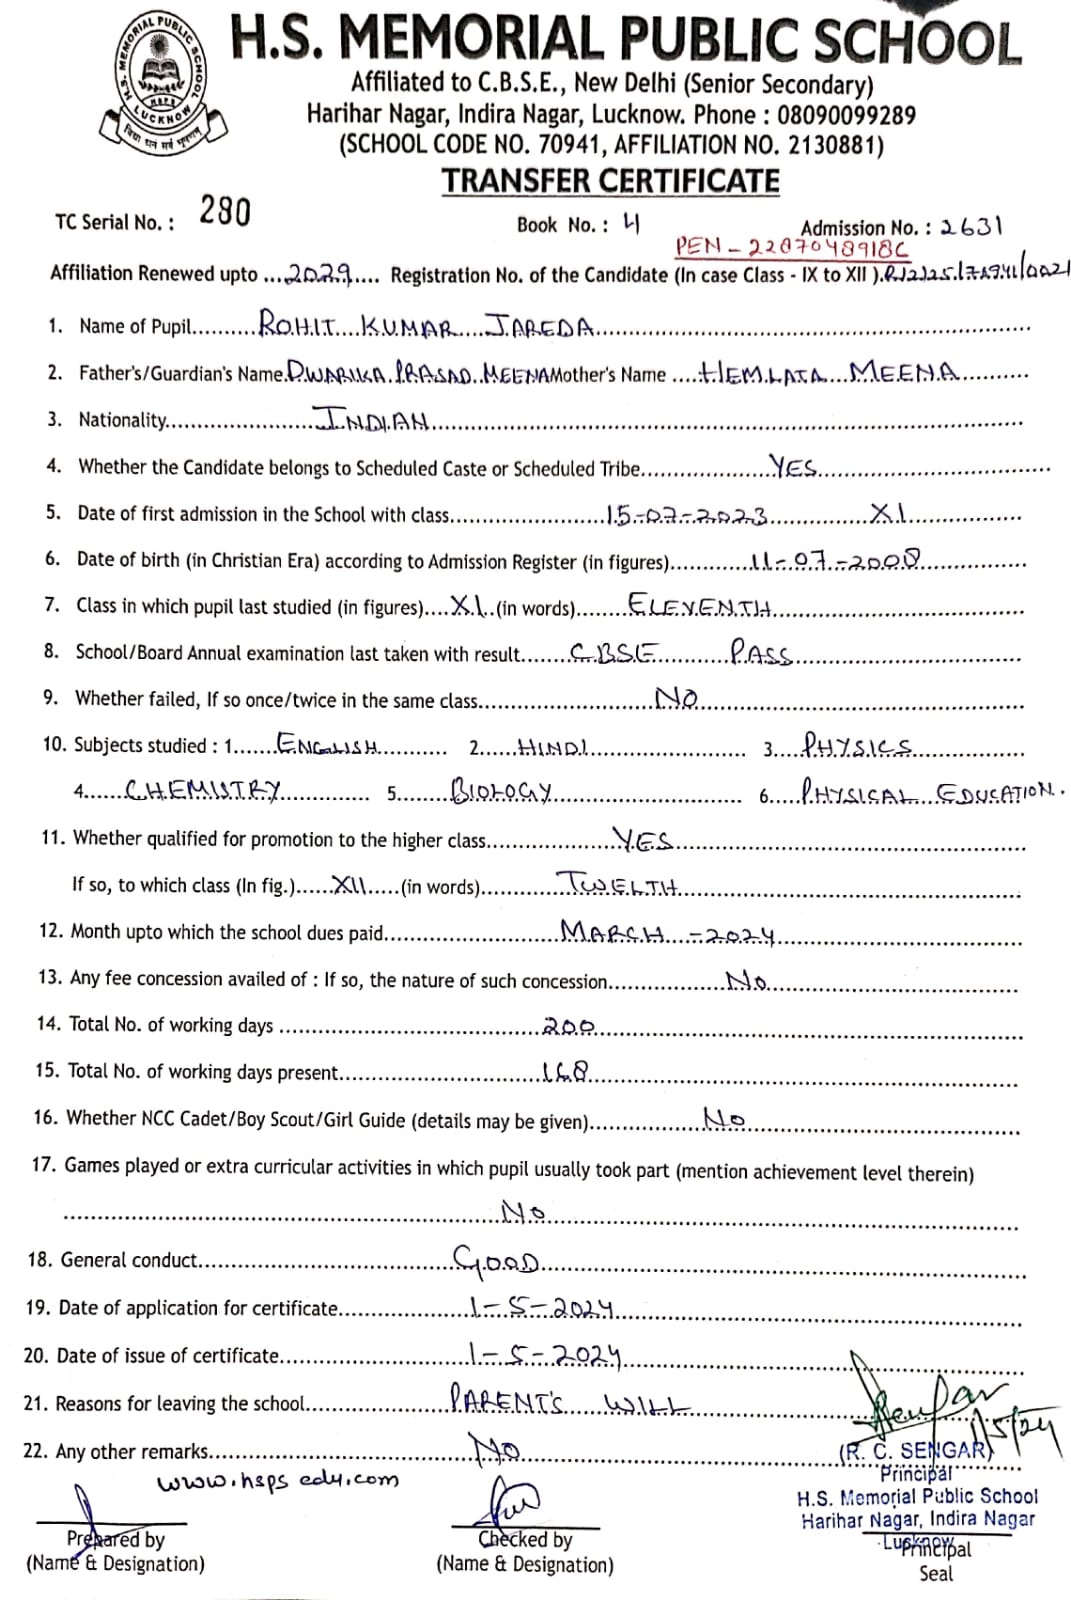 H.S. MEMORIAL PUBLIC SCHOOL
H.S. MEMORIAL PUBLIC SCHOOL
LUCKNOW
Affiliated to C.B.S.E., New Delhi (Senior Secondary)
Harihar Nagar, Indira Nagar, Lucknow. Phone : 08090099289
(SCHOOL CODE NO. 70941, AFFILIATION NO. 2130881)
TRANSFER CERTIFICATE
TC Serial No. : 280 Book No. : 4 Admission No. : 2631
PEN -
Affiliation Renewed upto ...2029.... Registration No. of the Candidate (In case Class - IX to XII ).
1. Name of Pupil..........ROHIT KUMAR JAREDA
2. Father's/Guardian's Name.DWARIKA PRASAD MEENA Mother's Name ....HEMLATA MEENA
3. Nationality......................INDIAN
4. Whether the Candidate belongs to Scheduled Caste or Scheduled Tribe...................YES
5. Date of first admission in the School with class.......................15-07-2023...............XI
6. Date of birth (in Christian Era) according to Admission Register (in figures)............11-07-2008
7. Class in which pupil last studied (in figures)....XI..(in words).......ELEVENTH
8. School/Board Annual examination last taken with result.......CBSE...........PASS
9. Whether failed, If so once/twice in the same class..........................NO
10. Subjects studied : 1......ENGLISH.......... 2.....HINDI....................... 3....PHYSICS
4......CHEMISTRY............. 5........BIOLOGY............................ 6.....PHYSICAL EDUCATION.
11. Whether qualified for promotion to the higher class...................YES
If so, to which class (In fig.)......XII.....(in words)...........TWELTH
12. Month upto which the school dues paid..........................MARCH - 2024
13. Any fee concession availed of : If so, the nature of such concession.................No
14. Total No. of working days .......................................200
15. Total No. of working days present..............................168
16. Whether NCC Cadet/Boy Scout/Girl Guide (details may be given).................No
17. Games played or extra curricular activities in which pupil usually took part (mention achievement level therein)
No
18. General conduct......................................GOOD
19. Date of application for certificate...................1-5-2024
20. Date of issue of certificate............................1-5-2024
21. Reasons for leaving the school.....................PARENT'S WILL
22. Any other remarks.......................................NO
www.hsps edu.com
(R. C. SENGAR)
Principal
H.S. Memorial Public School
Harihar Nagar, Indira Nagar
Lucknow
Prepared by Checked by Principal
(Name & Designation) (Name & Designation) Seal